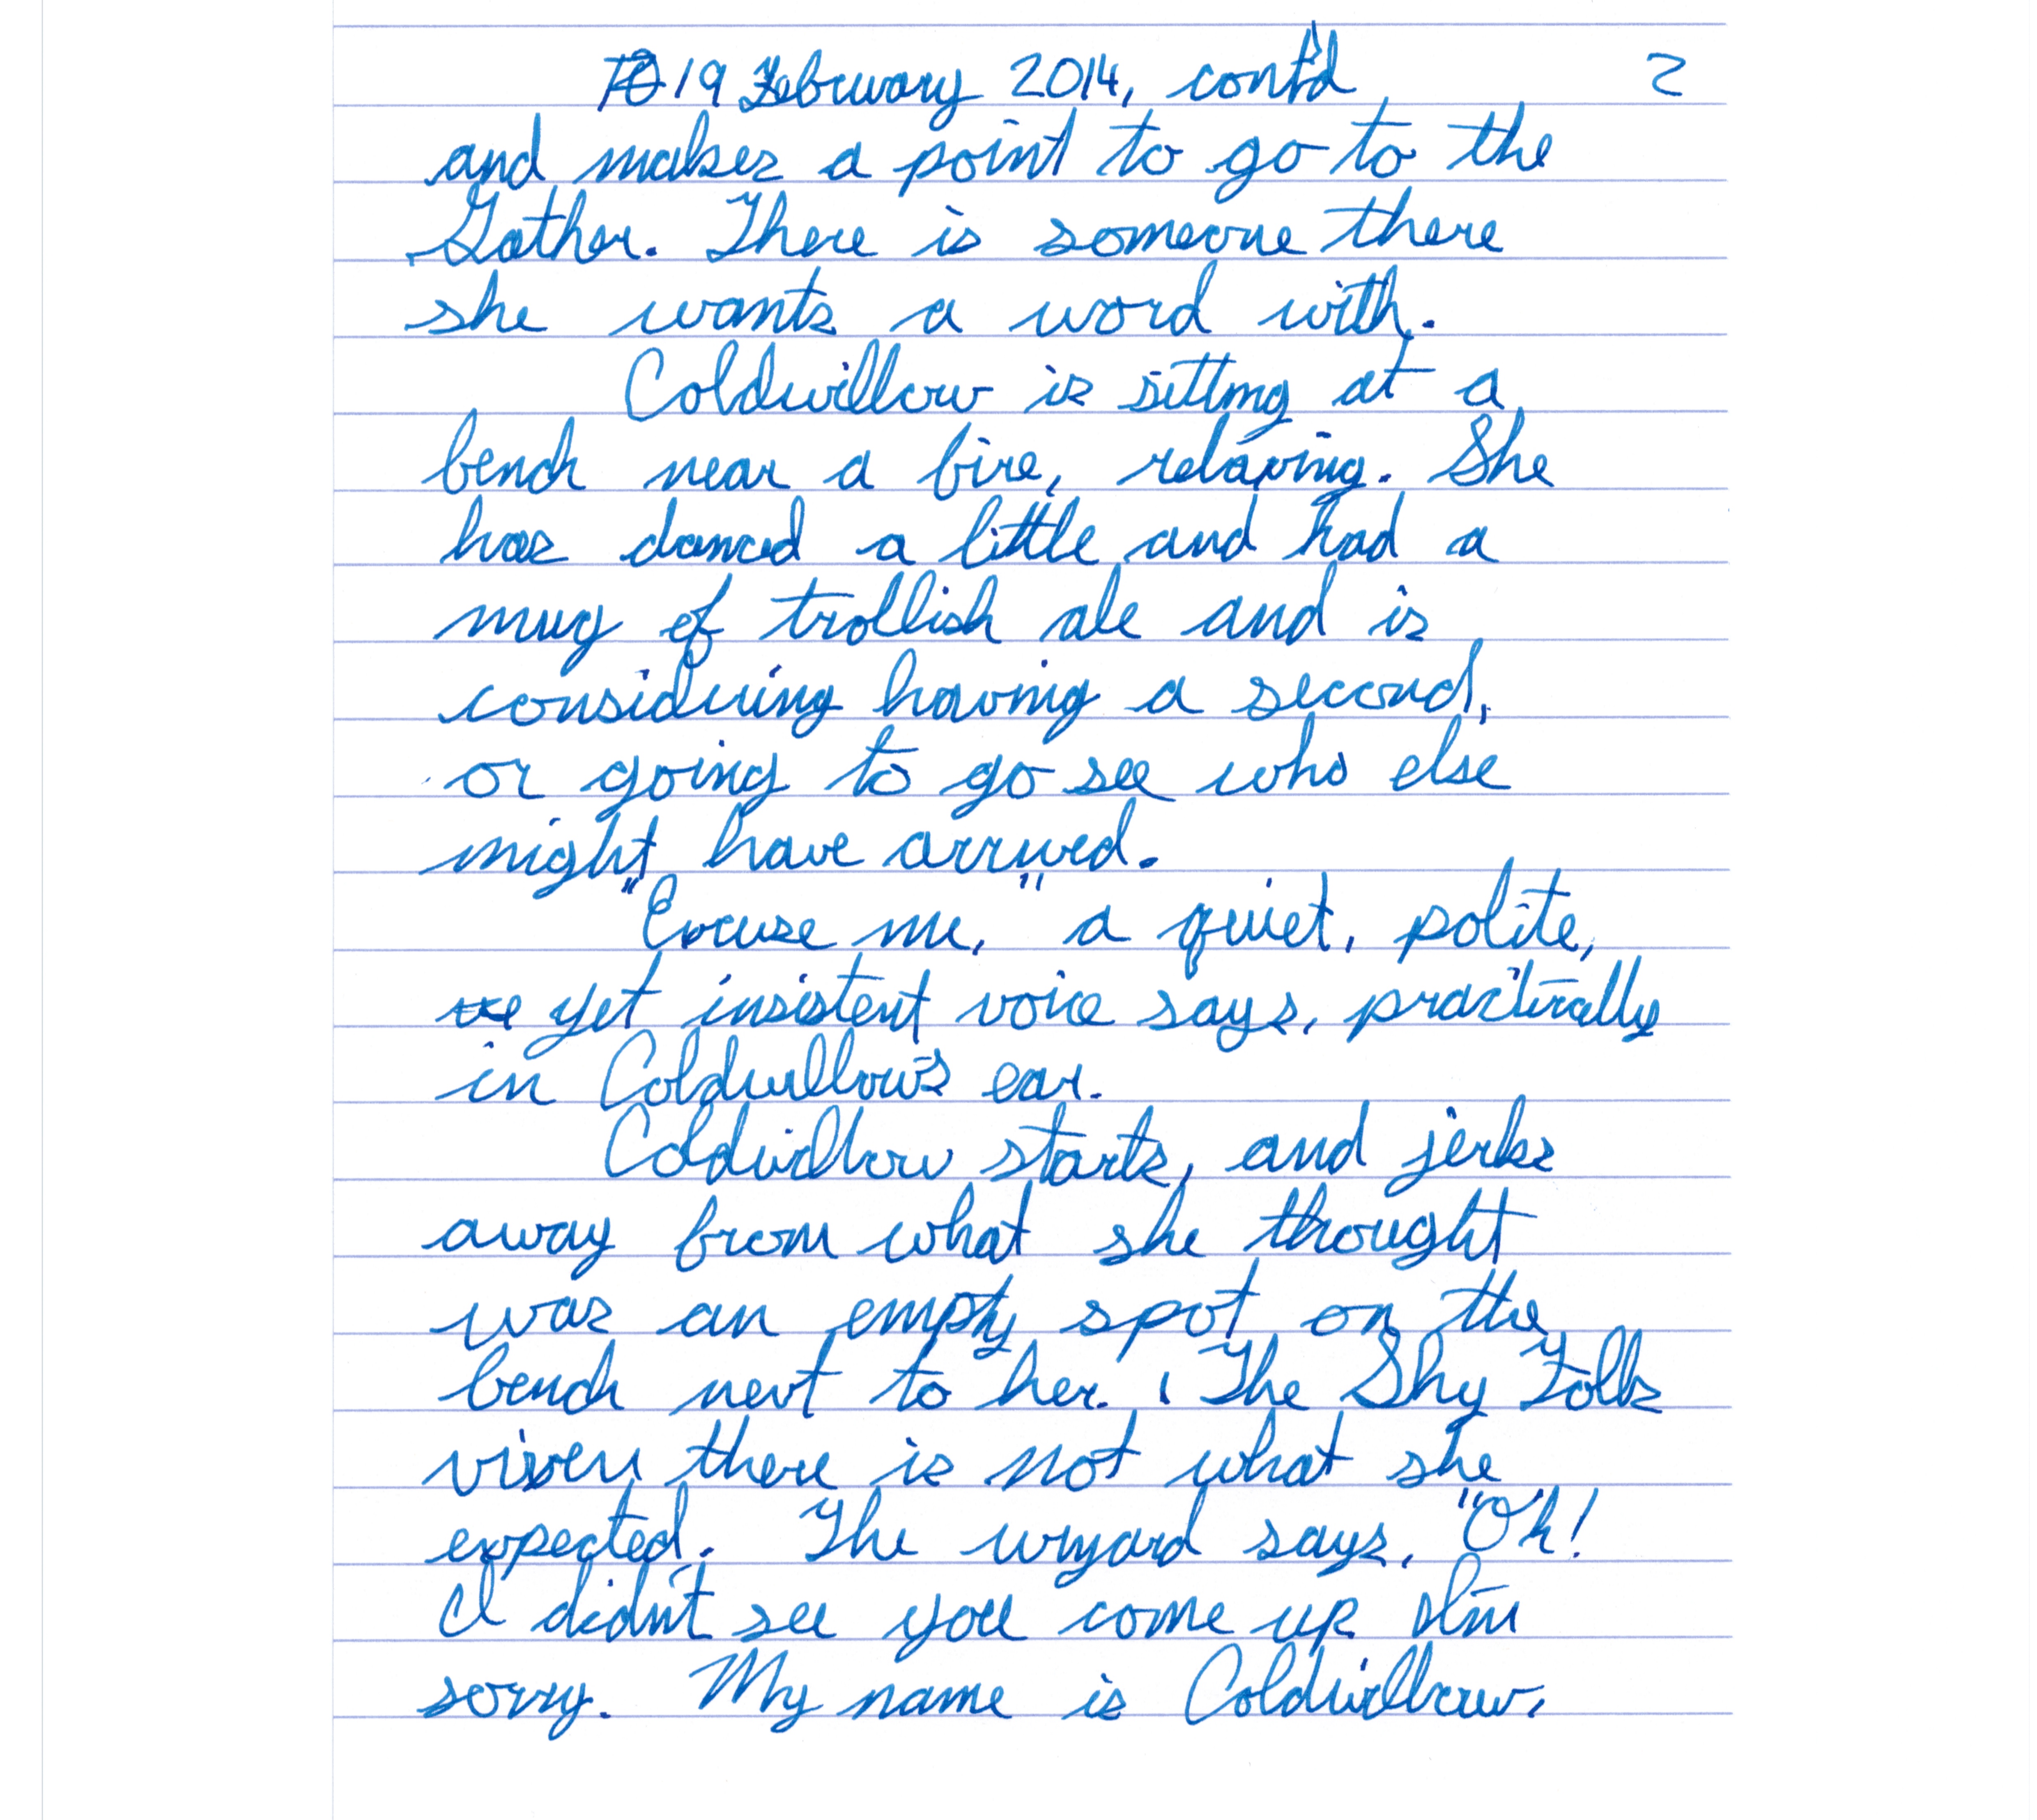 19 February 2014, cont'd 2
and makes a point to go to the
Gather. There is someone there
she wants a word with.
Coldwillow is sitting at a
bench near a fire, relaxing. She
has danced a little and had a
mug of trollish ale and is
considering having a second,
or going to go see who else
might have arrived.
"Excuse me," a quiet, polite,
yet insistent voice says, practically
in Coldwillow's ear.
Coldwillow starts, and jerks
away from what she thought
was an empty spot on the
bench next to her. The Shy Folk
vixen there is not what she
expected. The wyzard says, "Oh!
I didn't see you come up. I'm
sorry. My name is Coldwillow.